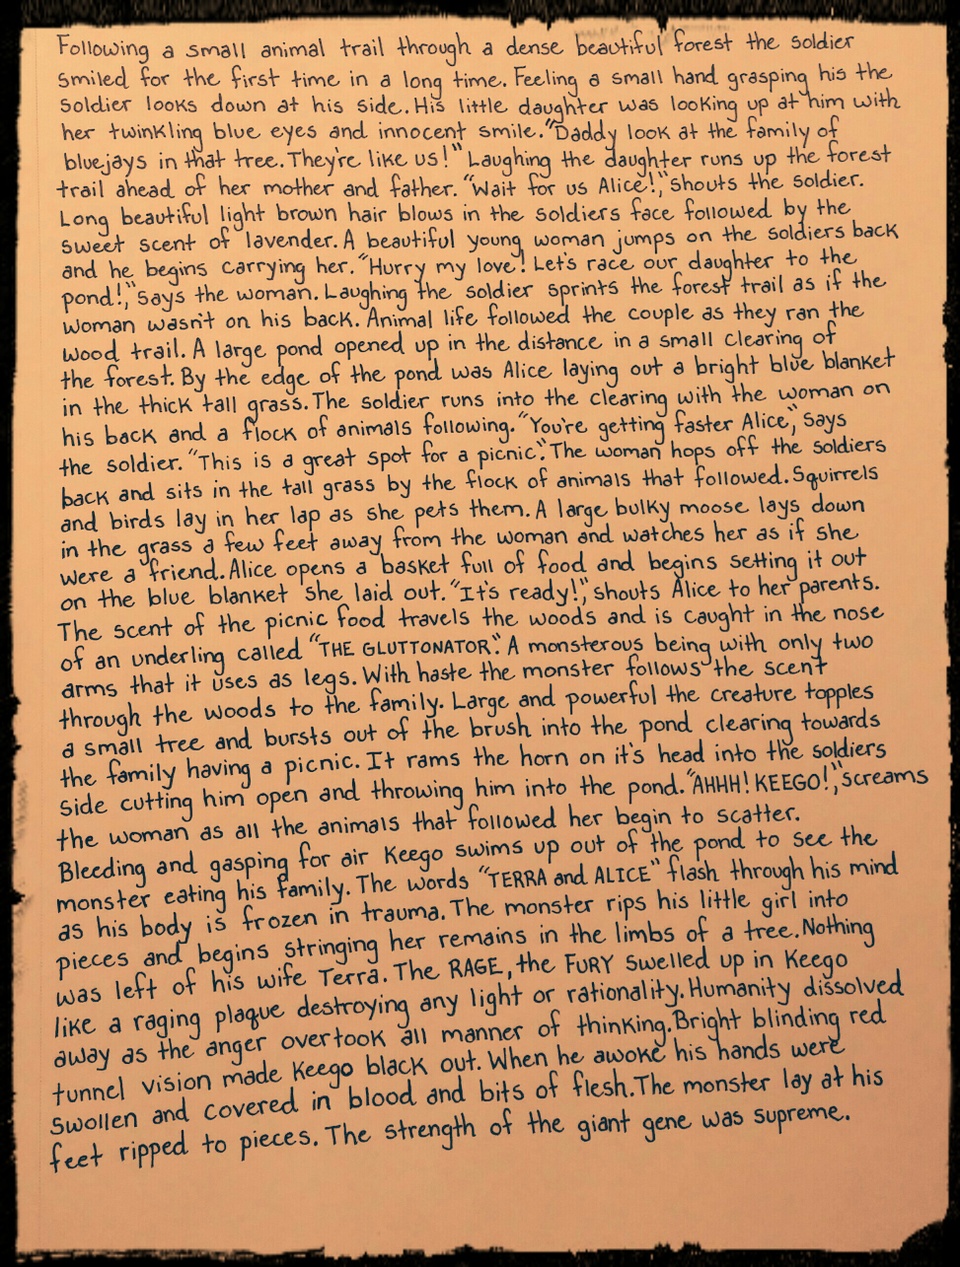 Following a small animal trail through a dense beautiful forest the soldier
smiled for the first time in a long time. Feeling a small hand grasping his the
soldier looks down at his side. His little daughter was looking up at him with
her twinkling blue eyes and innocent smile. "Daddy look at the family of
bluejays in that tree. They're like us!" Laughing the daughter runs up the forest
trail ahead of her mother and father. "Wait for us Alice!", shouts the soldier.
Long beautiful light brown hair blows in the soldiers face followed by the
sweet scent of lavender. A beautiful young woman jumps on the soldiers back
and he begins carrying her. "Hurry my love! Let's race our daughter to the
pond!", says the woman. Laughing the soldier sprints the forest trail as if the
woman wasn't on his back. Animal life followed the couple as they ran the
wood trail. A large pond opened up in the distance in a small clearing of
the forest. By the edge of the pond was Alice laying out a bright blue blanket
in the thick tall grass. The soldier runs into the clearing with the woman on
his back and a flock of animals following. "You're getting faster Alice", says
the soldier. "This is a great spot for a picnic". The woman hops off the soldiers
back and sits in the tall grass by the flock of animals that followed. Squirrels
and birds lay in her lap as she pets them. A large bulky moose lays down
in the grass a few feet away from the woman and watches her as if she
were a friend. Alice opens a basket full of food and begins setting it out
on the blue blanket she laid out. "It's ready!", shouts Alice to her parents.
The scent of the picnic food travels the woods and is caught in the nose
of an underling called "THE GLUTTONATOR". A monsterous being with only two
arms that it uses as legs. With haste the monster follows the scent
through the woods to the family. Large and powerful the creature topples
a small tree and bursts out of the brush into the pond clearing towards
the family having a picnic. It rams the horn on it's head into the soldiers
side cutting him open and throwing him into the pond. "AHHH! KEEGO!", screams
the woman as all the animals that followed her begin to scatter.
Bleeding and gasping for air Keego swims up out of the pond to see the
monster eating his family. The words "TERRA and ALICE" flash through his mind
as his body is frozen in trauma. The monster rips his little girl into
pieces and begins stringing her remains in the limbs of a tree. Nothing
was left of his wife Terra. The RAGE, the FURY swelled up in Keego
like a raging plaque destroying any light or rationality. Humanity dissolved
away as the anger overtook all manner of thinking. Bright blinding red
tunnel vision made Keego black out. When he awoke his hands were
swollen and covered in blood and bits of flesh. The monster lay at his
feet ripped to pieces. The strength of the giant gene was supreme.